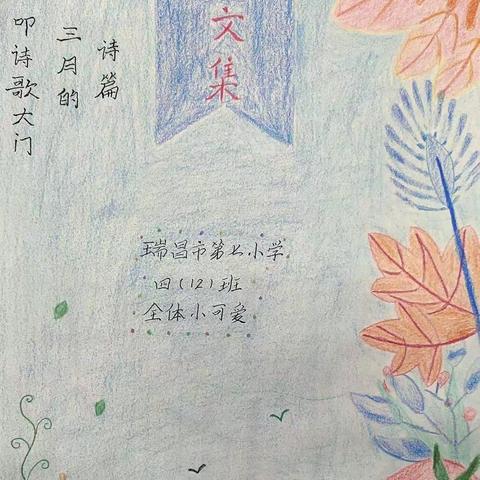 文集
诗篇
三月的
叩诗歌大门
瑞昌市第七小学
四（12）班
全体小可爱